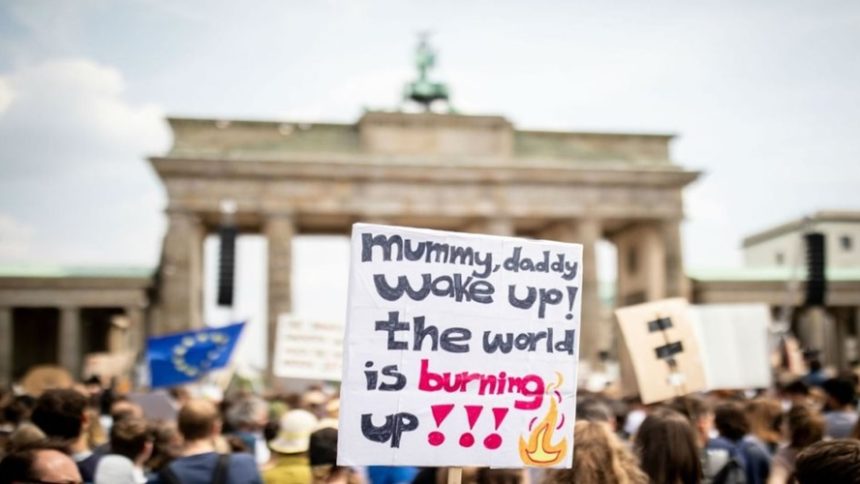 mummy, daddy
wake up!
the world
is burning
up!!!